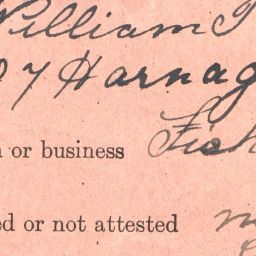 William
7 Harnag
or business Fish
ed or not attested